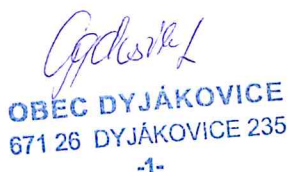 OBEC DYJÁKOVICE
671 26 DYJÁKOVICE 235
-1-